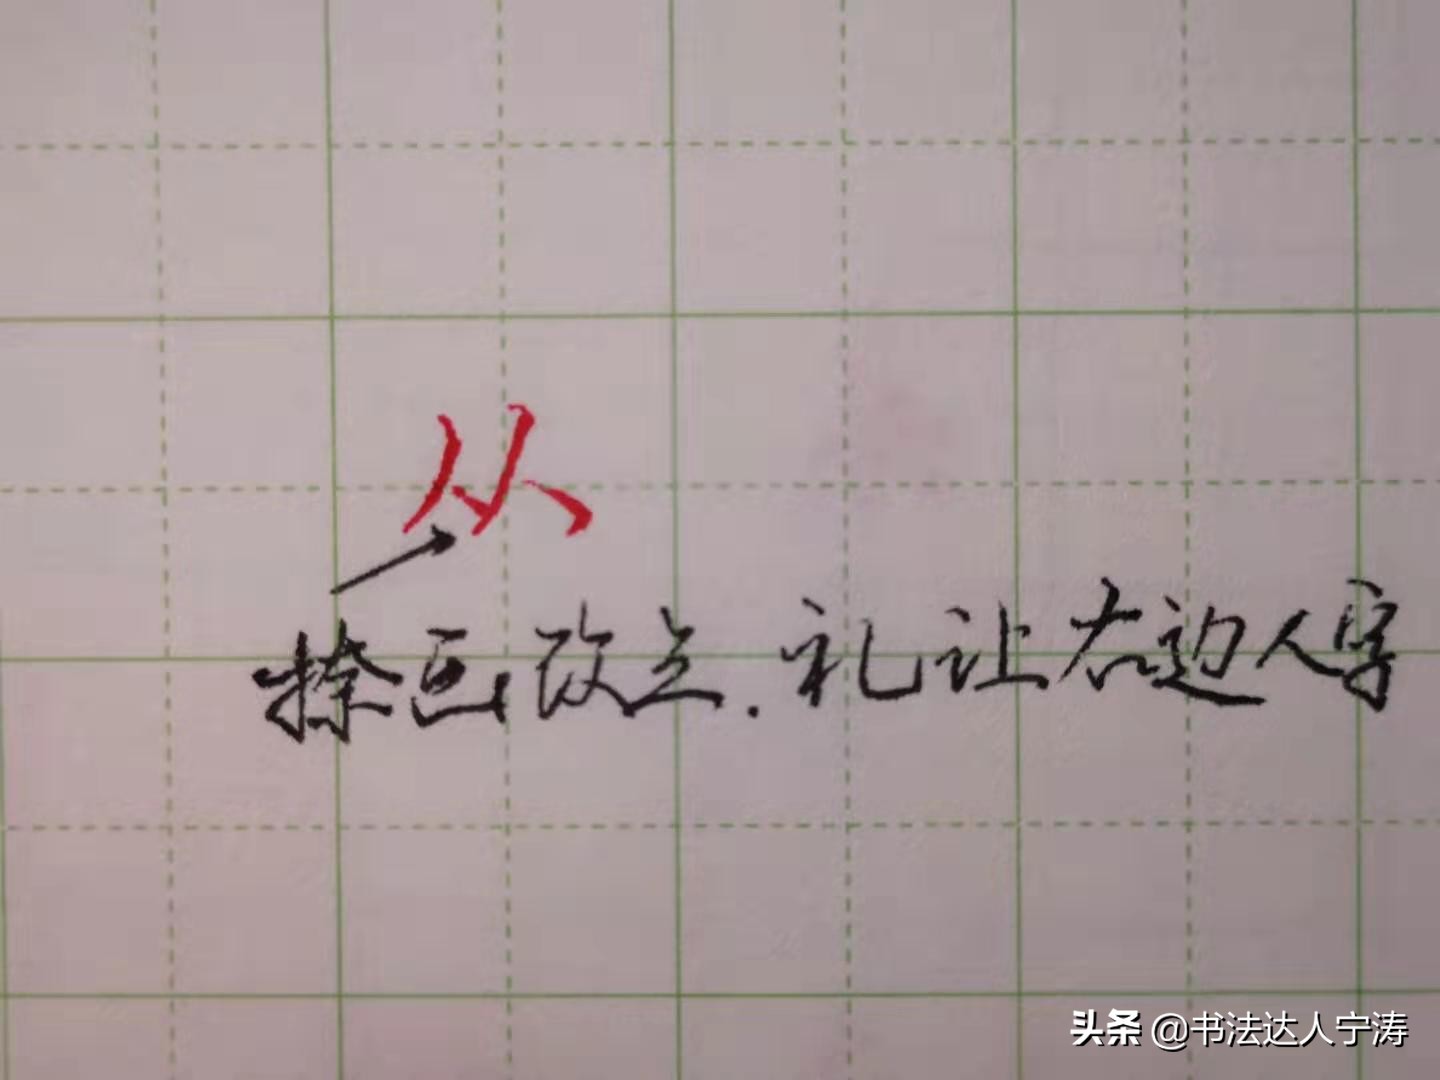 从
捺画改点.礼让右边人字
头条 @书法达人宁涛